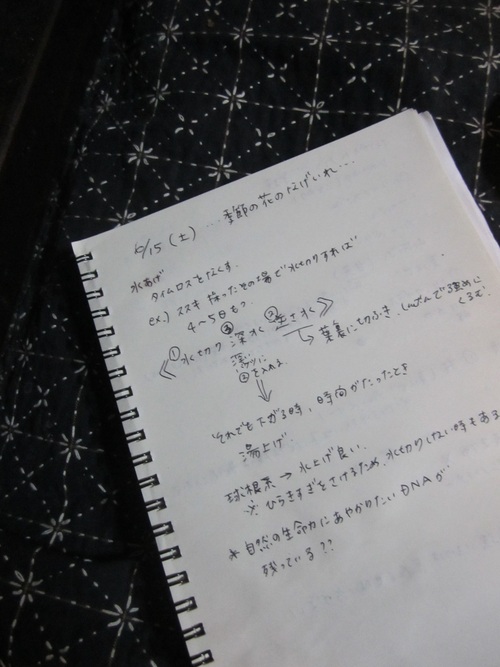 10/15 (土) ....季節の花のなげいれ...
水あげ
タイムロスをなくす.
ex.) ススキ 採ったその場で水切りすれば
4〜5日もつ.
《①水切り ③深水 ②空き水》
深い
バケツに
②を入れる
→葉裏に切りふき.しんぶんで3重めに
くるむ.
それでも下がる時, 時間がたったとき
湯上げ
球根系→水上げ良い.
※ひらきすぎをさけるため,水切りしない時もある
* 自然の生命力にあやかりたいDNAが
残っている??